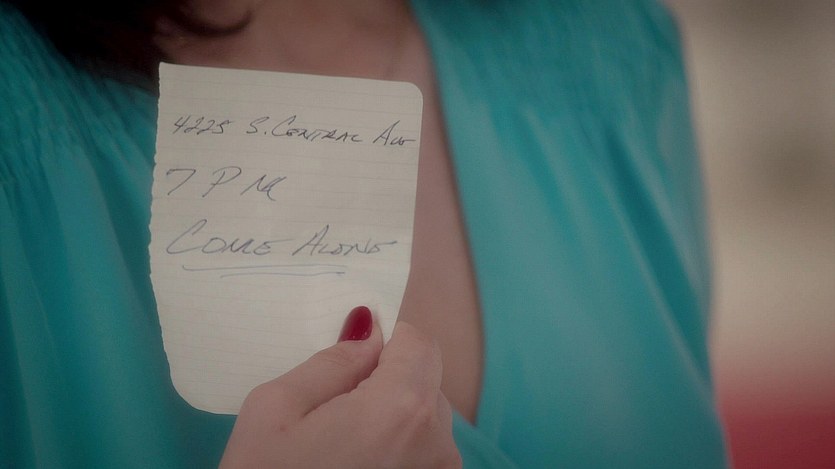 4225 S. CENTRAL AVE
7 PM
COME ALONE